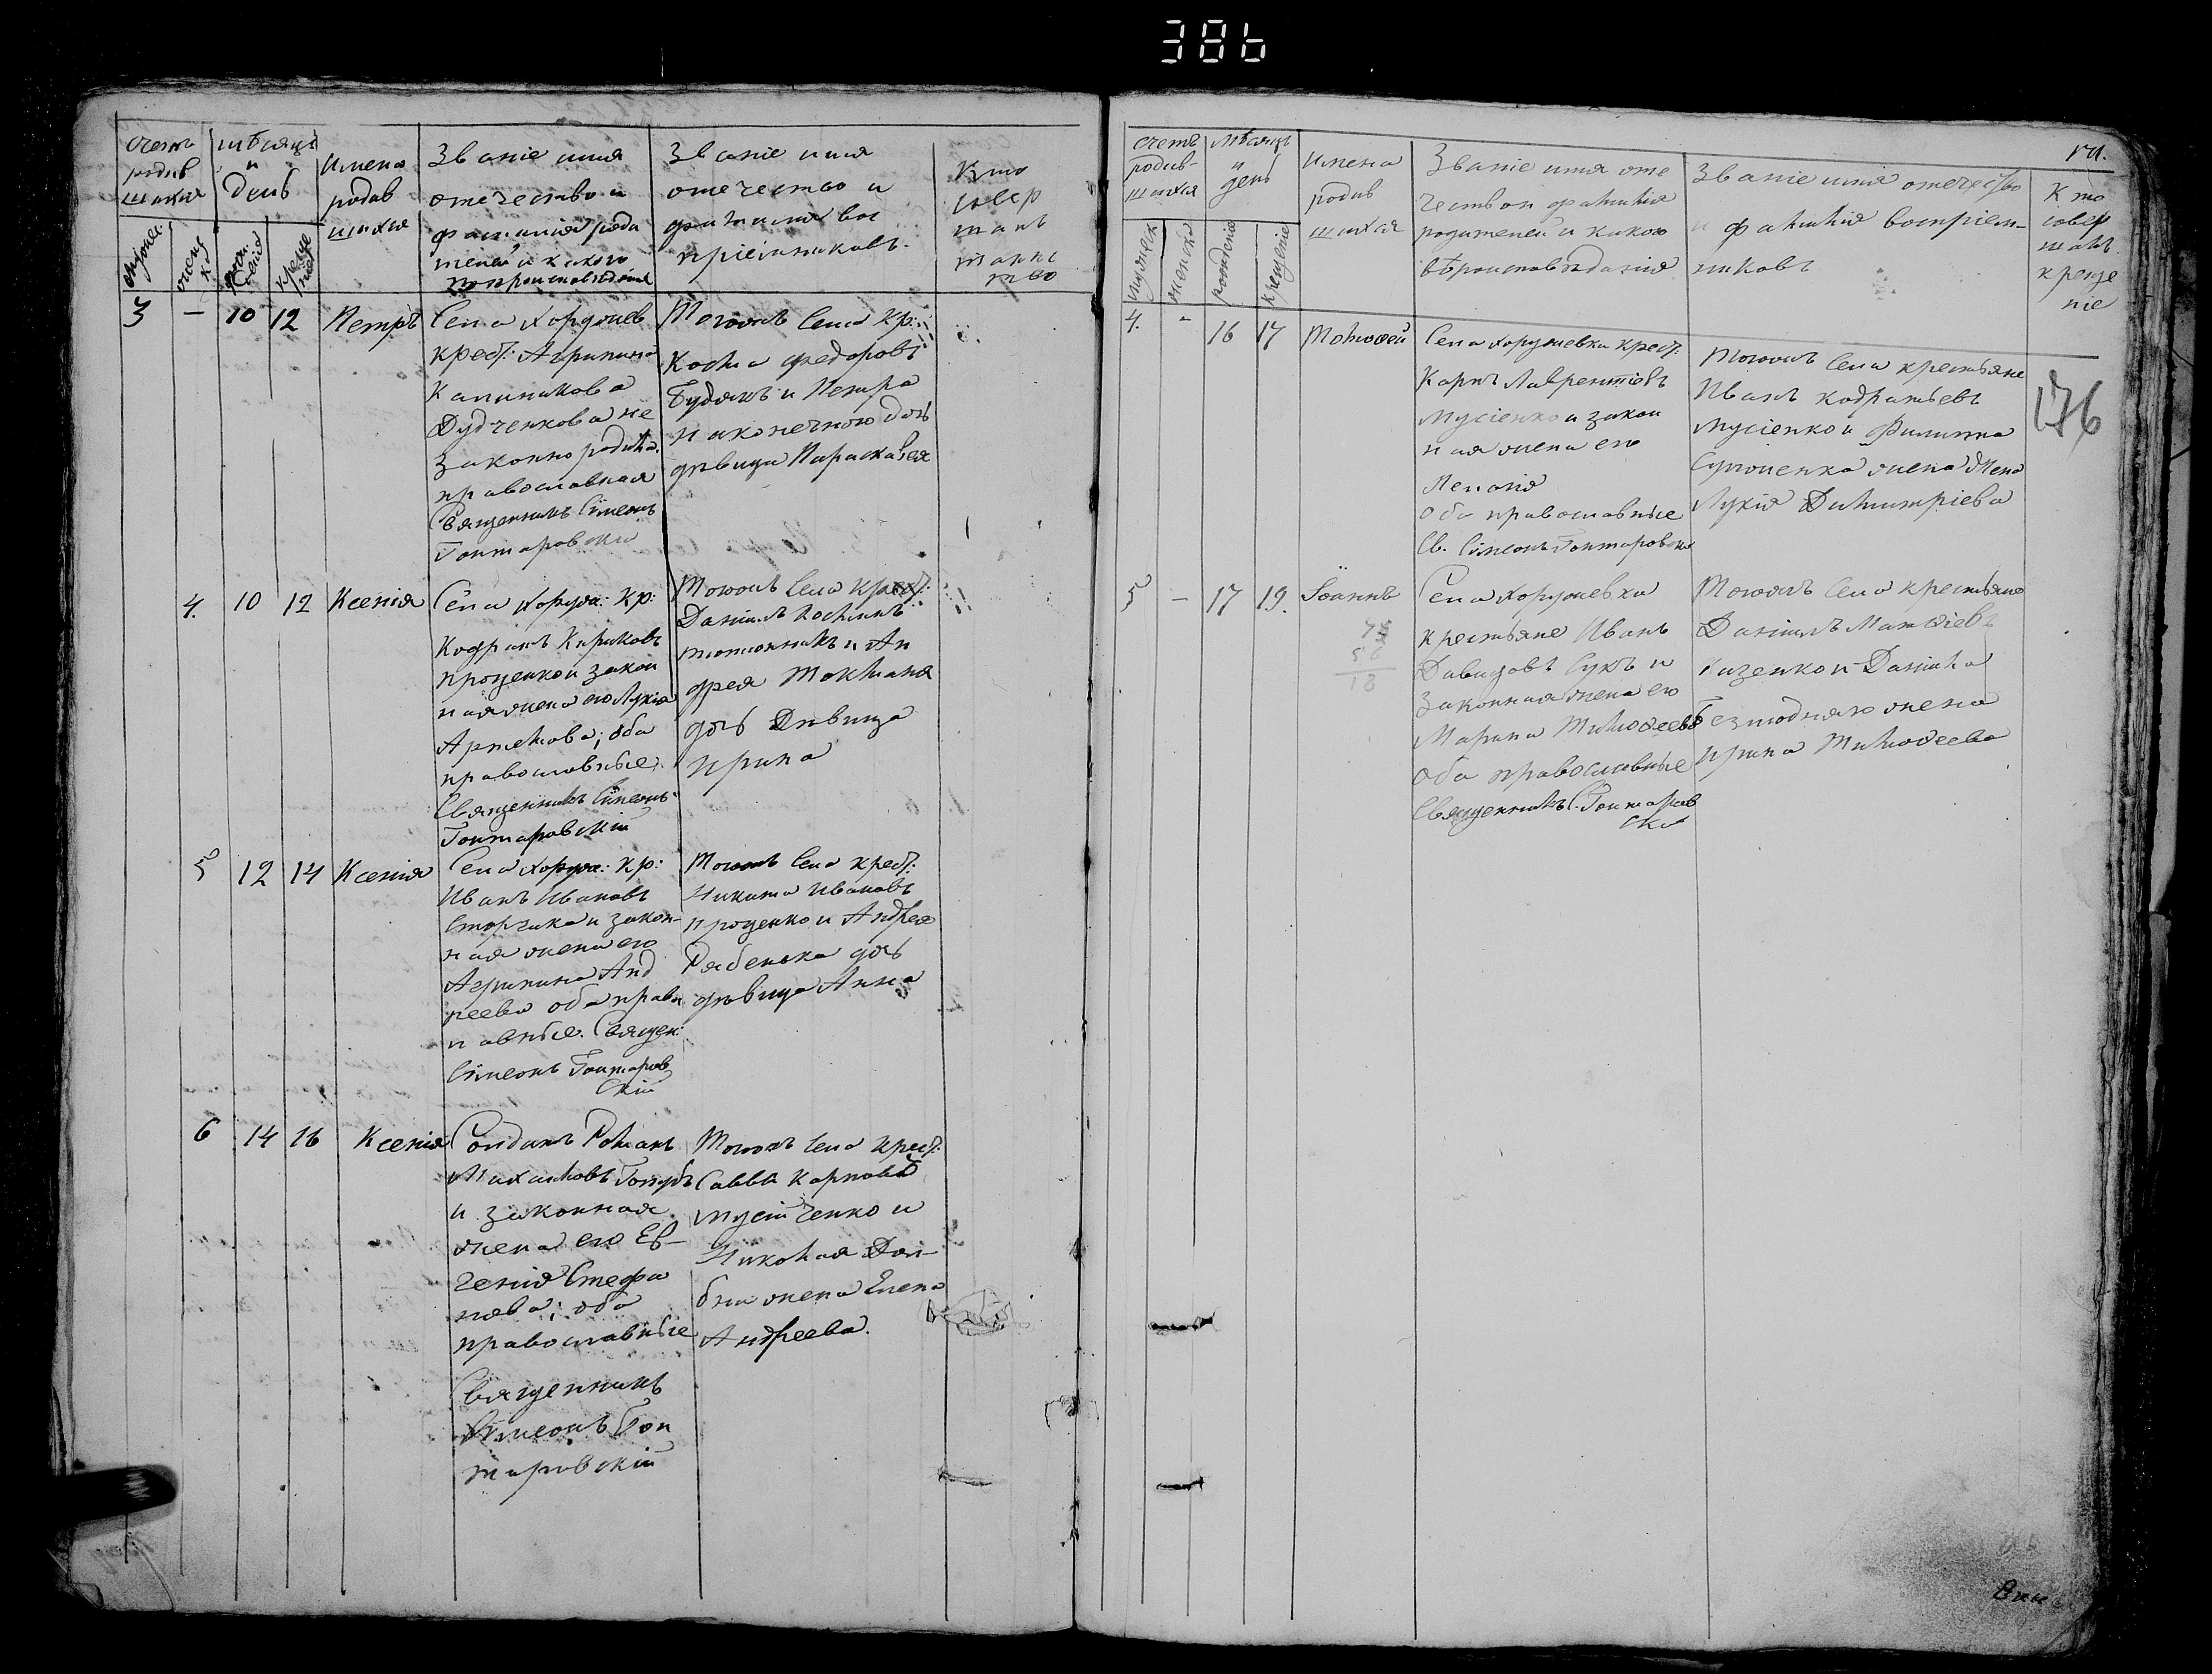 386
счетъ родив шихся
мѣсяцъ и день
Имена родив шихся
Званіе имя
отечество и
фамилія роди
телей и какого
вѣроисповѣданія
Званіе имя
отечество и
фамилия вос
пріемниковъ
Кто
совер
шалъ
таинс
тво
3 — 10 12 Петръ
Села Хоружев
крест: Агрипина
Калиникова
Дудченкова не
законнородила.
православная
Священникъ Симеонъ
Гонтаровскій
Тогожъ Села кр:
Косма Федоровъ
Будякъ и Петра
дочь
дѣвица Параскавея
4. 10 12 Ксенія
Села Хоруж: кр:
Кодратъ Кириковъ
Проценко и закон
ная жена его Лукія
Артемова; оба
православные.
Священникъ Симеонъ
Гонтаровскій
Тогожъ Села крест:
Даніилъ Косминъ
и Ан
дрея Токмана
дочь Дѣвица
Ирина
5 12 14 Ксенія
Села Хоруж: кр:
Иванъ Ивановъ
Сторчака и закон-
ная жена его
Агрипина Анд
реева оба право
славные. Священ:
Симеонъ Гонтаров
скій
Тогожъ Села крест:
Никита Ивановъ
Проценко и Андрея
Рябенька дочь
дѣвица Анна
6 14 16 Ксенія
Солдатъ Романъ
Михаиловъ Голубъ
и законная
жена его Ев-
генія Стефа
нова; оба
православные
Священникъ
Симеонъ Гон
таровскій
Тогожъ Села крест:
Савва Карповъ
Мусійченко и
Николая Дол-
бни жена Елена
Андреева.
171.
счетъ родив- шихся
мѣсяцъ и день
мужеск
женска
рожденія
крещенія
Имена родив шихся
Званіе имя оте
чество и фамилия
родителей и какого
вѣроисповѣданія
Званіе имя отечество
и фамилия воспріем-
никовъ
Кто
совер
шалъ
креще
ніе
4. - 16 17 Тимофей
Села Хоружевки крест:
Карпъ Лаврентіевъ
Мусіенко и закон
ная жена его
Меланія
оба православные
Св. Симеонъ Гонтаровскій
Тогожъ Села крестьяне
Иванъ Кодратьевъ
Мусіенко и Филиппа
жена
Лукія Димитріева
176
5 — 17 19. Іоаннъ
Села Хоружевки
крестьяне Иванъ
Давидовъ Сукъ и
Законная жена его
Марина Тимофеева
оба православные
Священникъ С. Гонтаров
скій
Тогожъ Села крестьяне
Даніилъ Матвіевъ
и Даніила
жена
Ирина Тимофеева
18